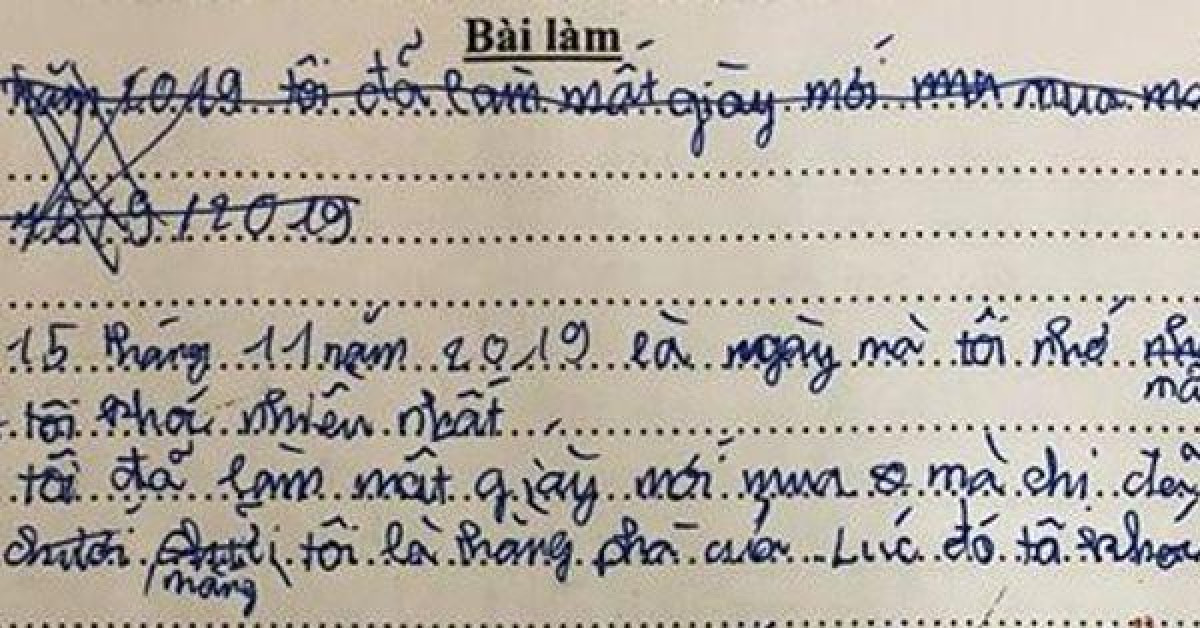 Bài làm
năm 2019 tôi đả làm mất giày mới mu mua
15/9/2019
15 tháng 11 năm 2019 là ngày mà tôi nhớ
mã
tôi khóc nhiều nhất
tôi đả làm mất giày mới mua mà chị
chưởi tôi là thằng phá của. Lúc đó tô khóc
mắng